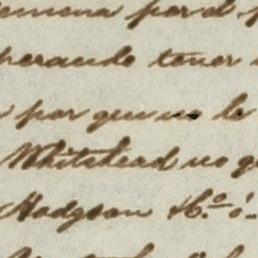 por el
perando tener
por que no le
Whitehead no q
Hodgson & Cº ó